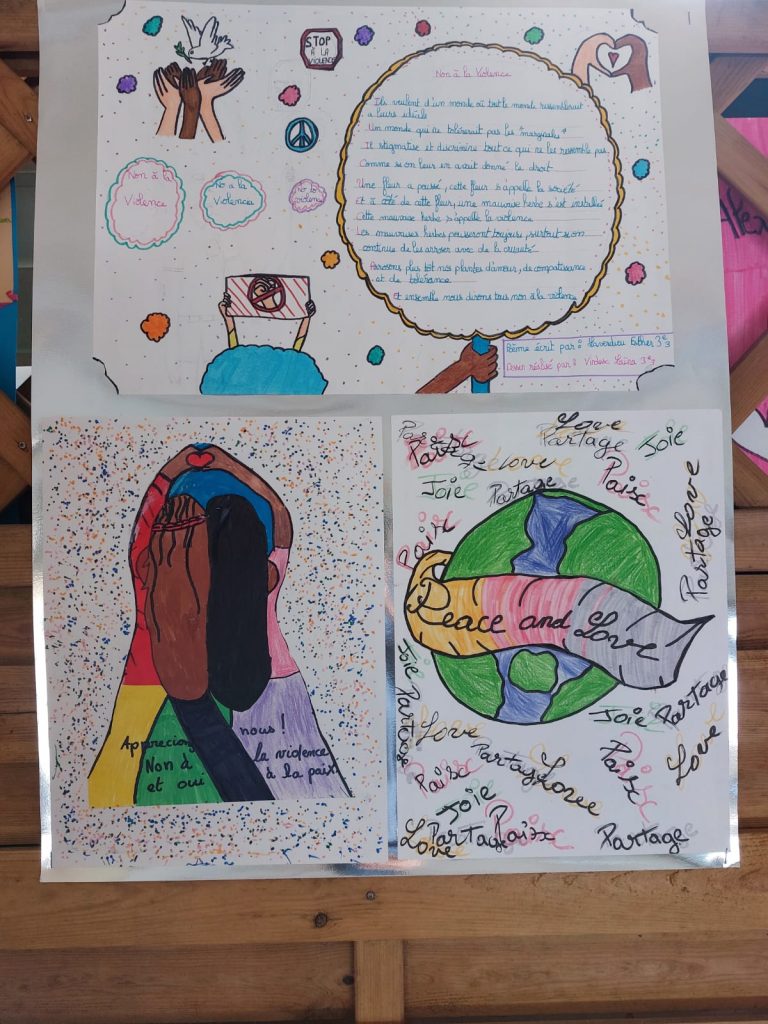 STOP
À LA
VIOLENCE
Non à la
Violence
No a la
Violencia
No to
violence
Non à la Violence
Ils veulent d'un monde où tout le monde ressemblerait
a leurs idéale
Un monde qui ne tolérerait pas les "marginales"
Il stigmatise et discrimine tout ce qui ne les ressemble pas
Comme si on leur en avait donné le droit
Une fleur a poussé, cette fleur s'appelle la société
Et à côté de cette fleur, une mauvaise herbe s'est installé
Cette mauvaise herbe s'appelle la violence
Les mauvaises herbes pousseront toujours, surtout si on
continue de les arroser avec de la cruauté
Arrosons plus tôt nos plantes d'amour, de compatissance
et de tolérance
Et ensemble nous dirons tous non à la violence
Poème écrit par: Esther 3e3
Dessin réalisé par:
Apprecions nous !
Non à la violence
et oui à la paix
Love
Partage
Joie
Paix
Love
Joie
Partage
Paix
Love
Partage
Paix
Peace and Love
Joie
Partage
Joie
Partage
Love
Partage
Paix
Love
Paix
Love
Joie
Love
Partage
Paix
Partage